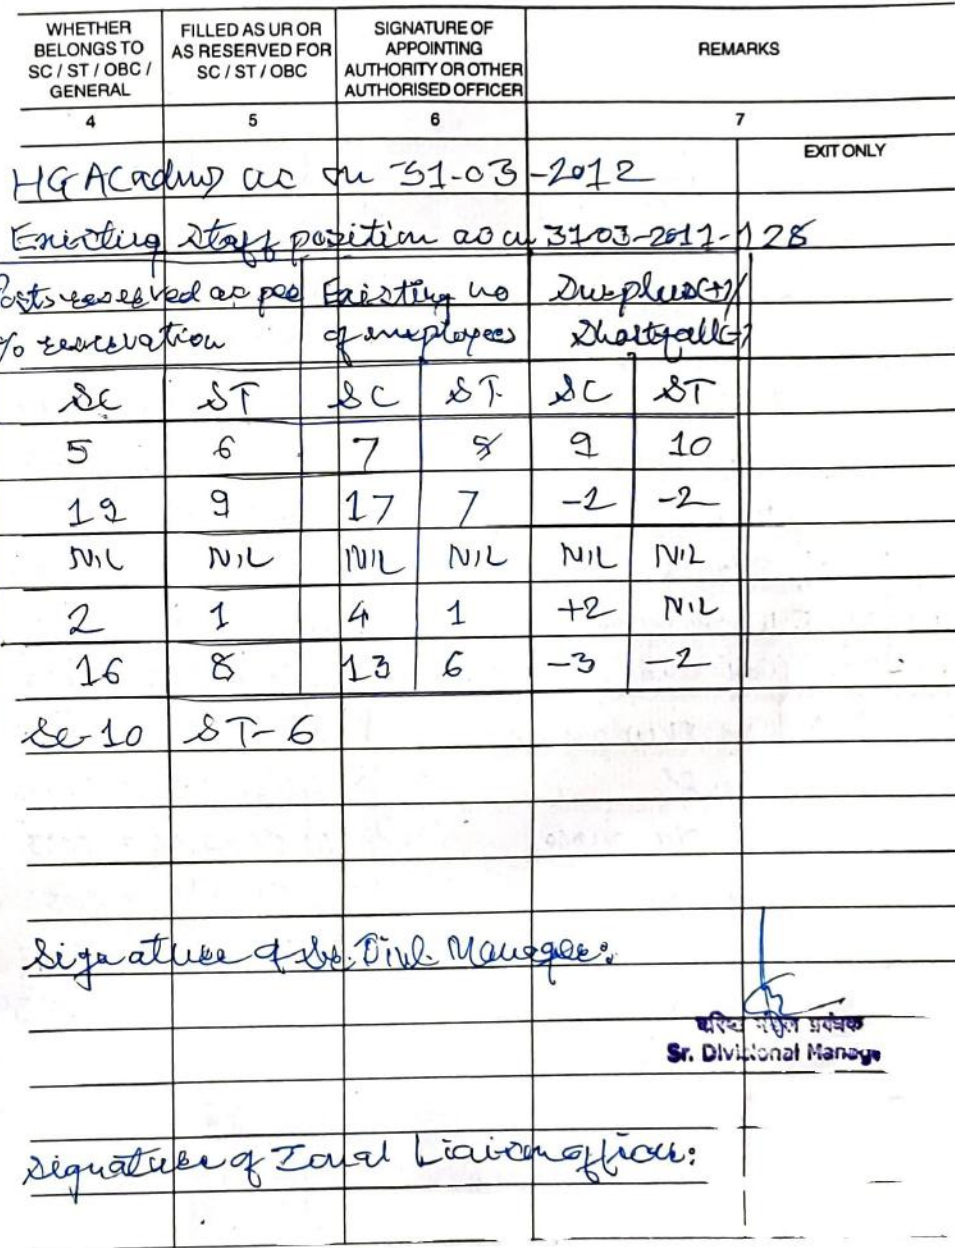 WHETHER BELONGS TO SC / ST / OBC / GENERAL
FILLED AS UR OR AS RESERVED FOR SC / ST / OBC
SIGNATURE OF APPOINTING AUTHORITY OR OTHER AUTHORISED OFFICER
REMARKS
4 5 6 7
EXIT ONLY
as on 31-03-2012
Existing Staff position as on 31-03-2011-128
Posts reserved as per Existing no Surplus(+)/
% reservation of employees Shortfall(-)
SC ST SC ST. SC ST
5 6 7 8 9 10
19 9 17 7 -2 -2
NIL NIL NIL NIL NIL NIL
2 1 4 1 +2 NIL
16 8 13 6 -3 -2
SC-10 ST-6
Signature of Sr. Divl. Manager:
वरिष्ठ मंडल प्रबंधक
Sr. Divisional Manage
Signature of Zonal Liaison officer: